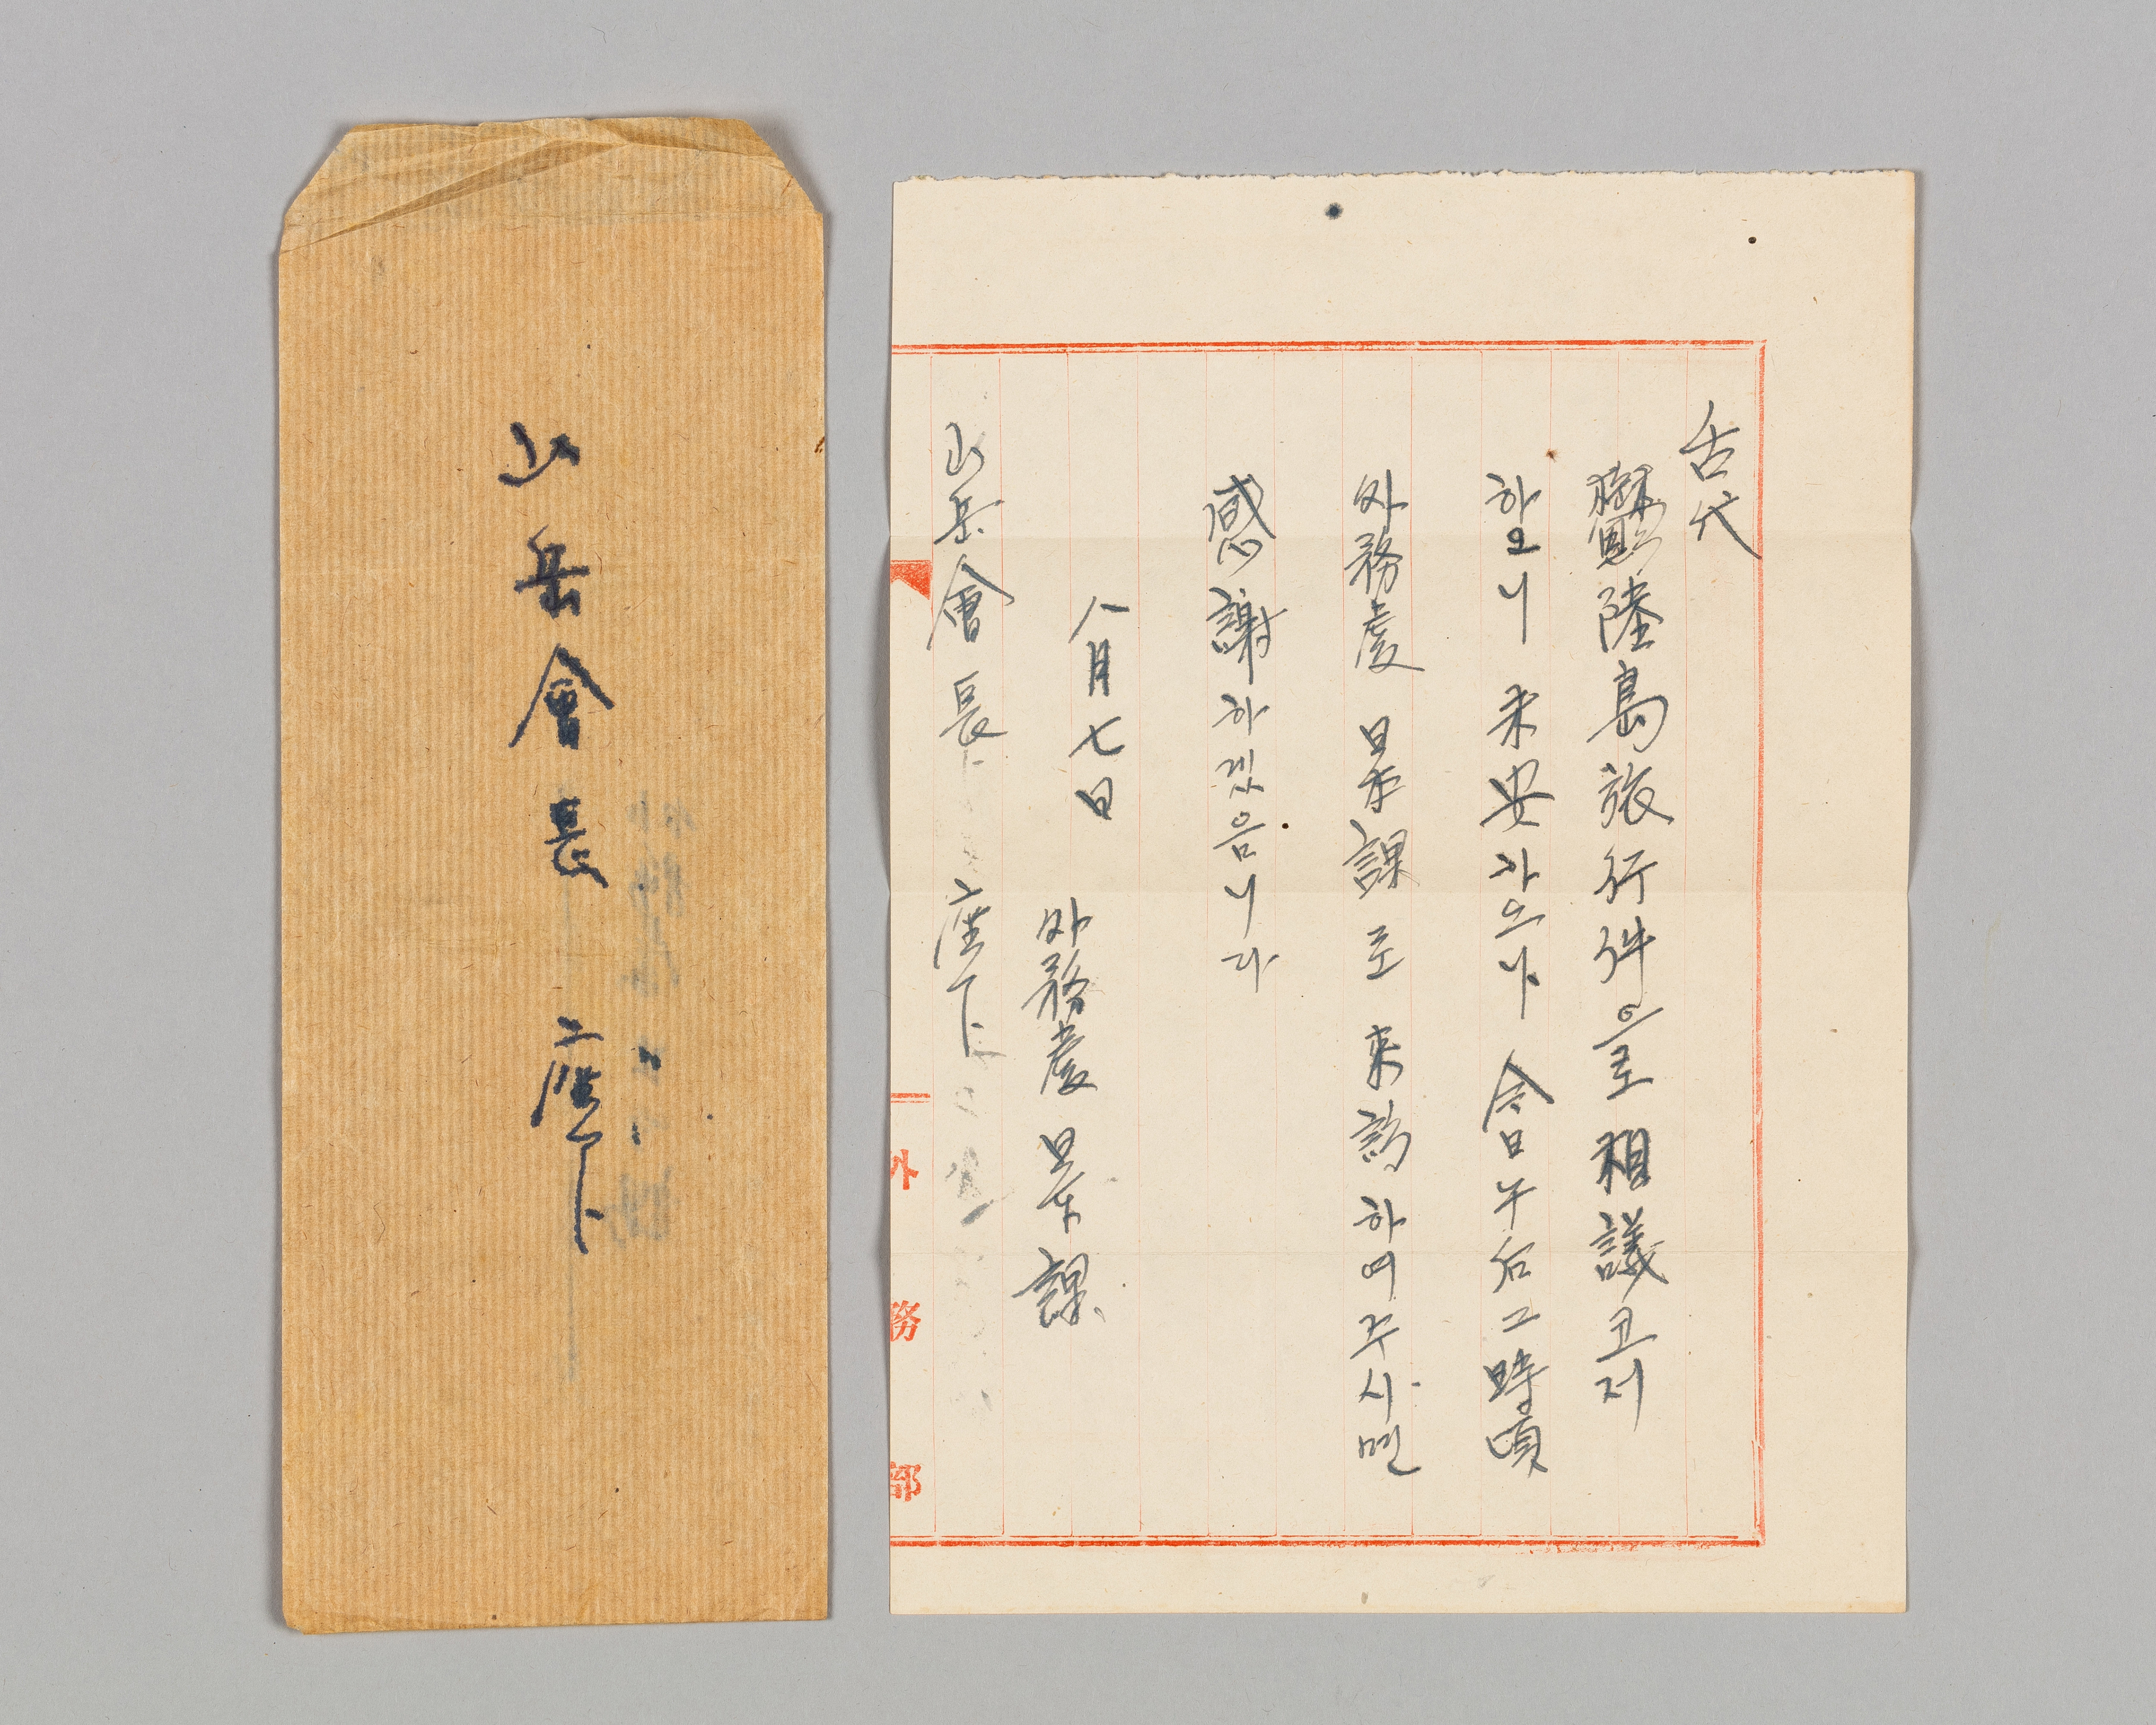 山岳會長 座下
舌代
鬱陸島旅行件으로 相議코저
하오니 未安하으나 今日午后二時頃
外務處 日本課로 來訪하여주시면
感謝하겟음니다
八月七日
外務處 日本課
山岳會長 座下
外務部